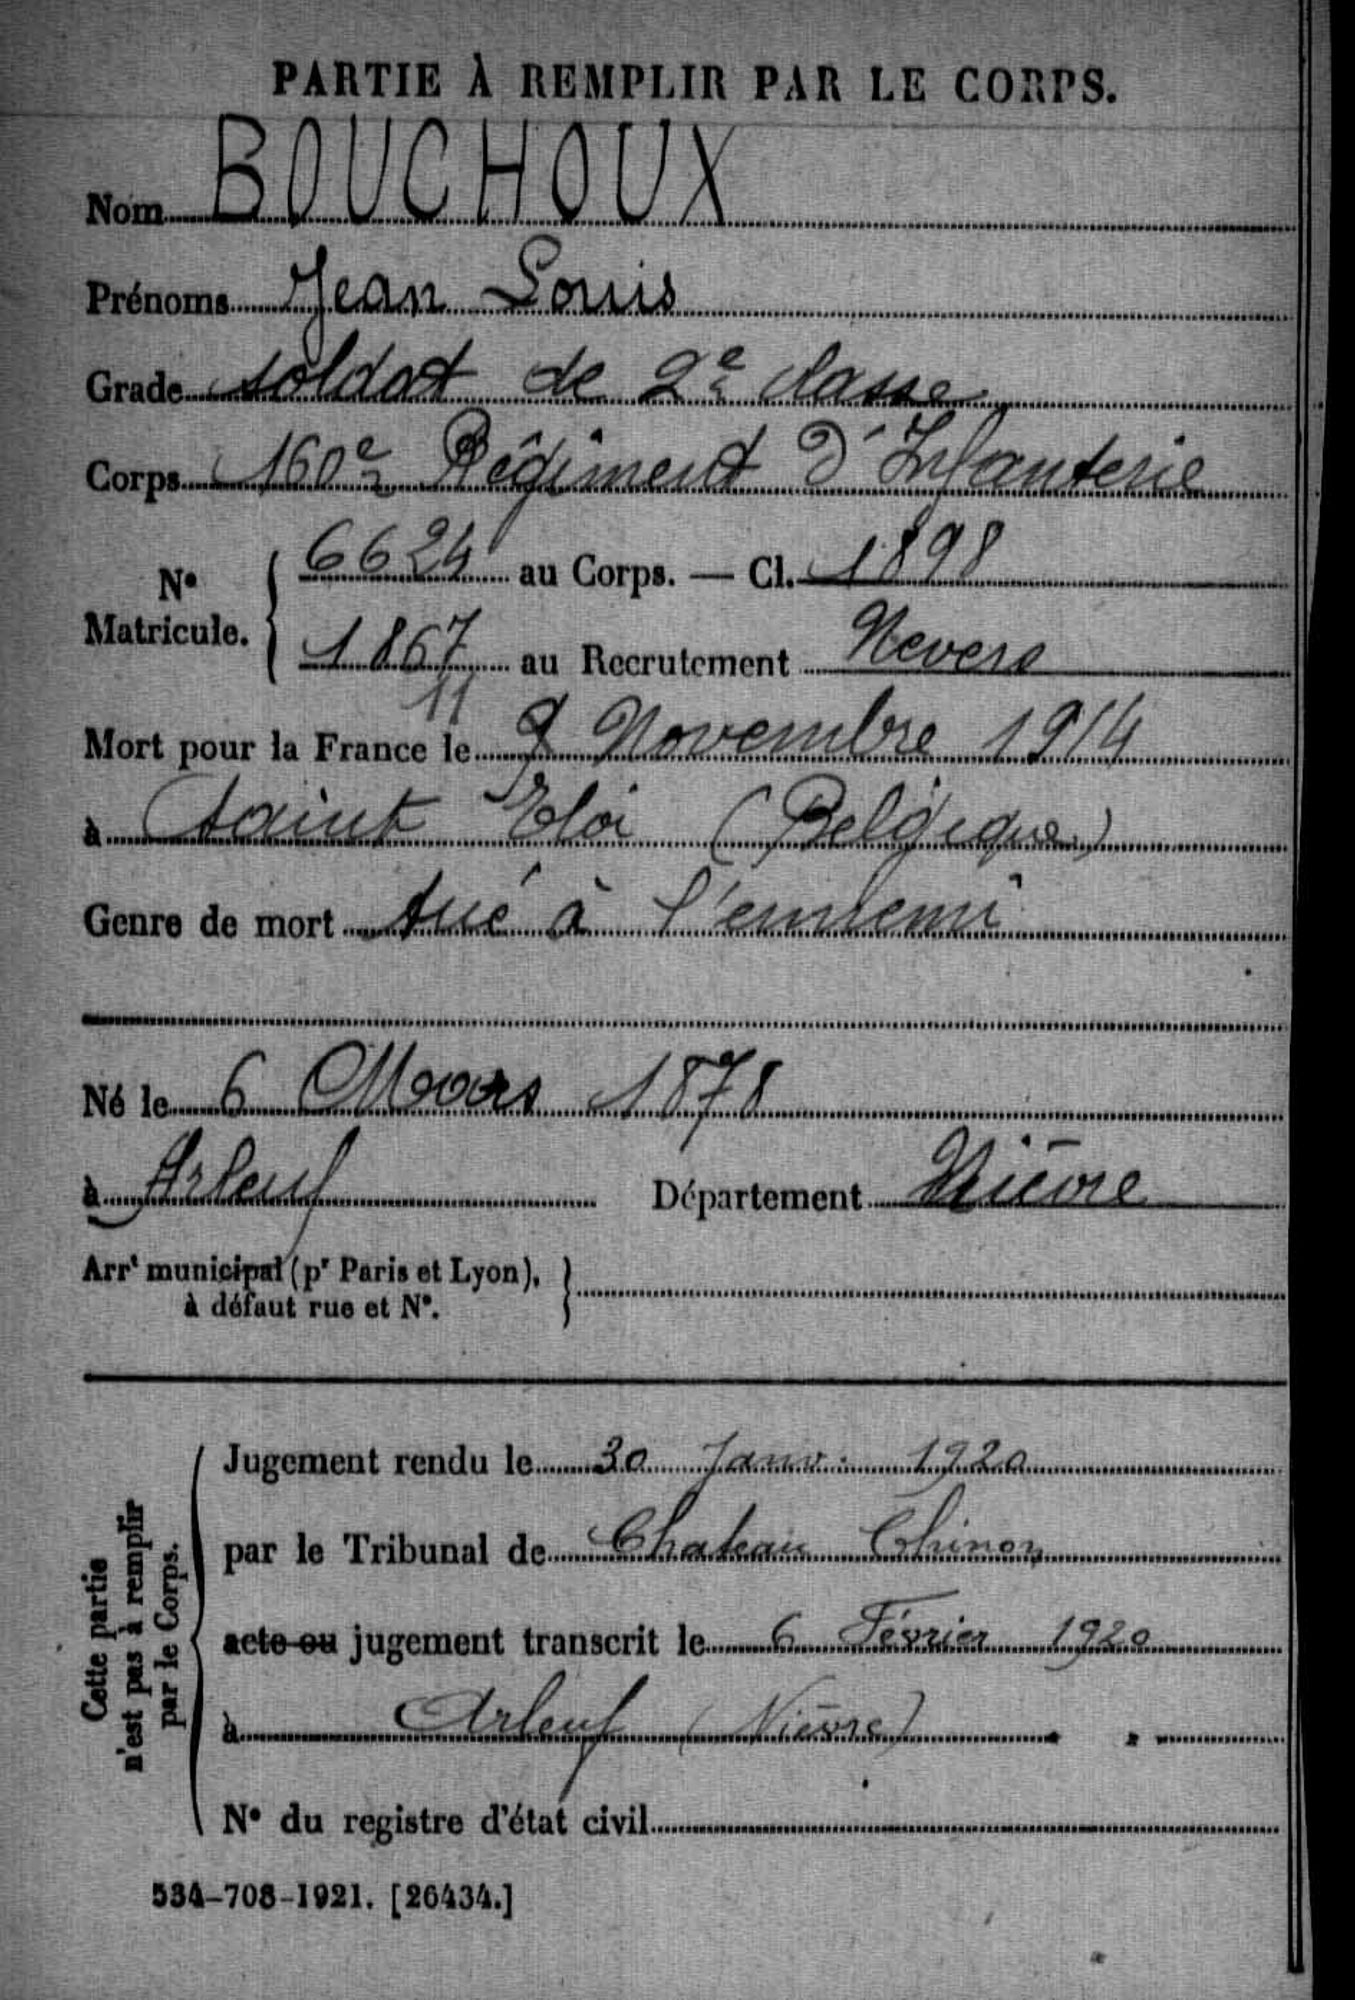 PARTIE À REMPLIR PAR LE CORPS.
Nom BOUCHOUX
Prénoms Jean Louis
Grade soldat de 2e classe
Corps 160e Régiment d'Infanterie
No Matricule. 6624 au Corps. — Cl. 1898
1867 au Recrutement Nevers
11
Mort pour la France le Novembre 1914
à Saint Eloi (Belgique)
Genre de mort tué à l'ennemi
Né le 6 Mars 1878
à Arleuf Département Nièvre
Arrt municipal (pr Paris et Lyon),
à défaut rue et No.
Cette partie
n'est pas à remplir
par le Corps.
Jugement rendu le 30 Janv. 1920
par le Tribunal de Chateau Chinon
acte ou jugement transcrit le 6 Février 1920
à Arleuf (Nièvre)
No du registre d'état civil
534-708-1921. [26434.]